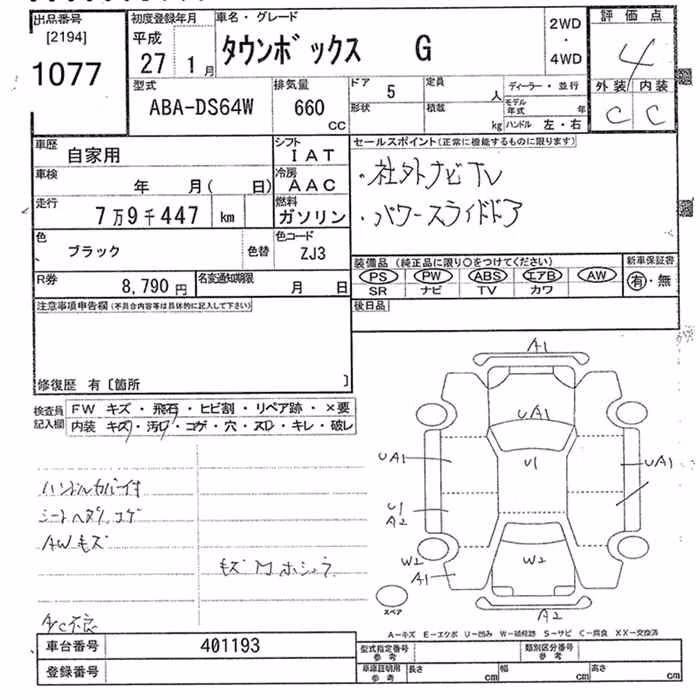 出品番号 初度登録年月 車名・グレード 2WD・4WD 評価点
[2194] 平成
1077 27 1月 タウンボックス G 4
外装 内装
C C
型式 排気量 ドア 5 定員 人 ディーラー・並行
ABA-DS64W 660 CC 形状 積載 kg モデル年式 年
ハンドル 左・右
車歴 自家用 シフト IAT セールスポイント(正常に機能するものに限ります)
車検 年 月( 日) 冷房 AAC ・社外ナビTV
走行 7万9千447 km 燃料 ガソリン ・パワースライドドア
色 ブラック 色替 色コード ZJ3
装備品(純正品に限り○をつけてください) 新車保証書
PS PW ABS エアB AW 有・無
SR ナビ TV カワ
R券 8,790円 名変通知期限 月 日
後日品
注意事項申告欄(不具合内容等は具体的に記入して下さい)
修復歴 有〔箇所 〕
検査員記入欄 FW キズ・飛石・ヒビ割・リペア跡・×要
内装 キズ・汚レ・コゲ・穴・スレ・キレ・破レ
ハンドルカバー付
シートヘタリ、コゲ
AWキズ
A/C不良
A1
UA1
UA1 U1 UA1
U1
A2
W2 W2
A1
スペア A2
A-キズ E-エクボ U-凹み W-補修跡 S-サビ C-腐食 XX-交換済
車台番号 401193 型式指定番号 参考 類別区分番号 参考
登録番号 車庫証明用 参考 長さ cm 幅 cm 高さ cm